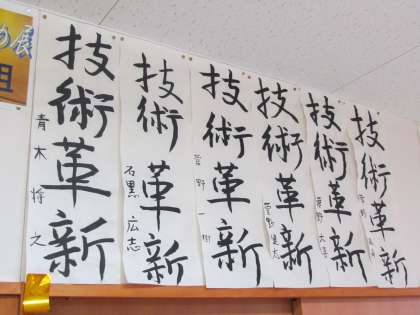 の展
組
技術革新
青木将之
技術革新
石黒広志
技術革新
菅野一樹
技術革新
菅野健太
技術革新
技術革新